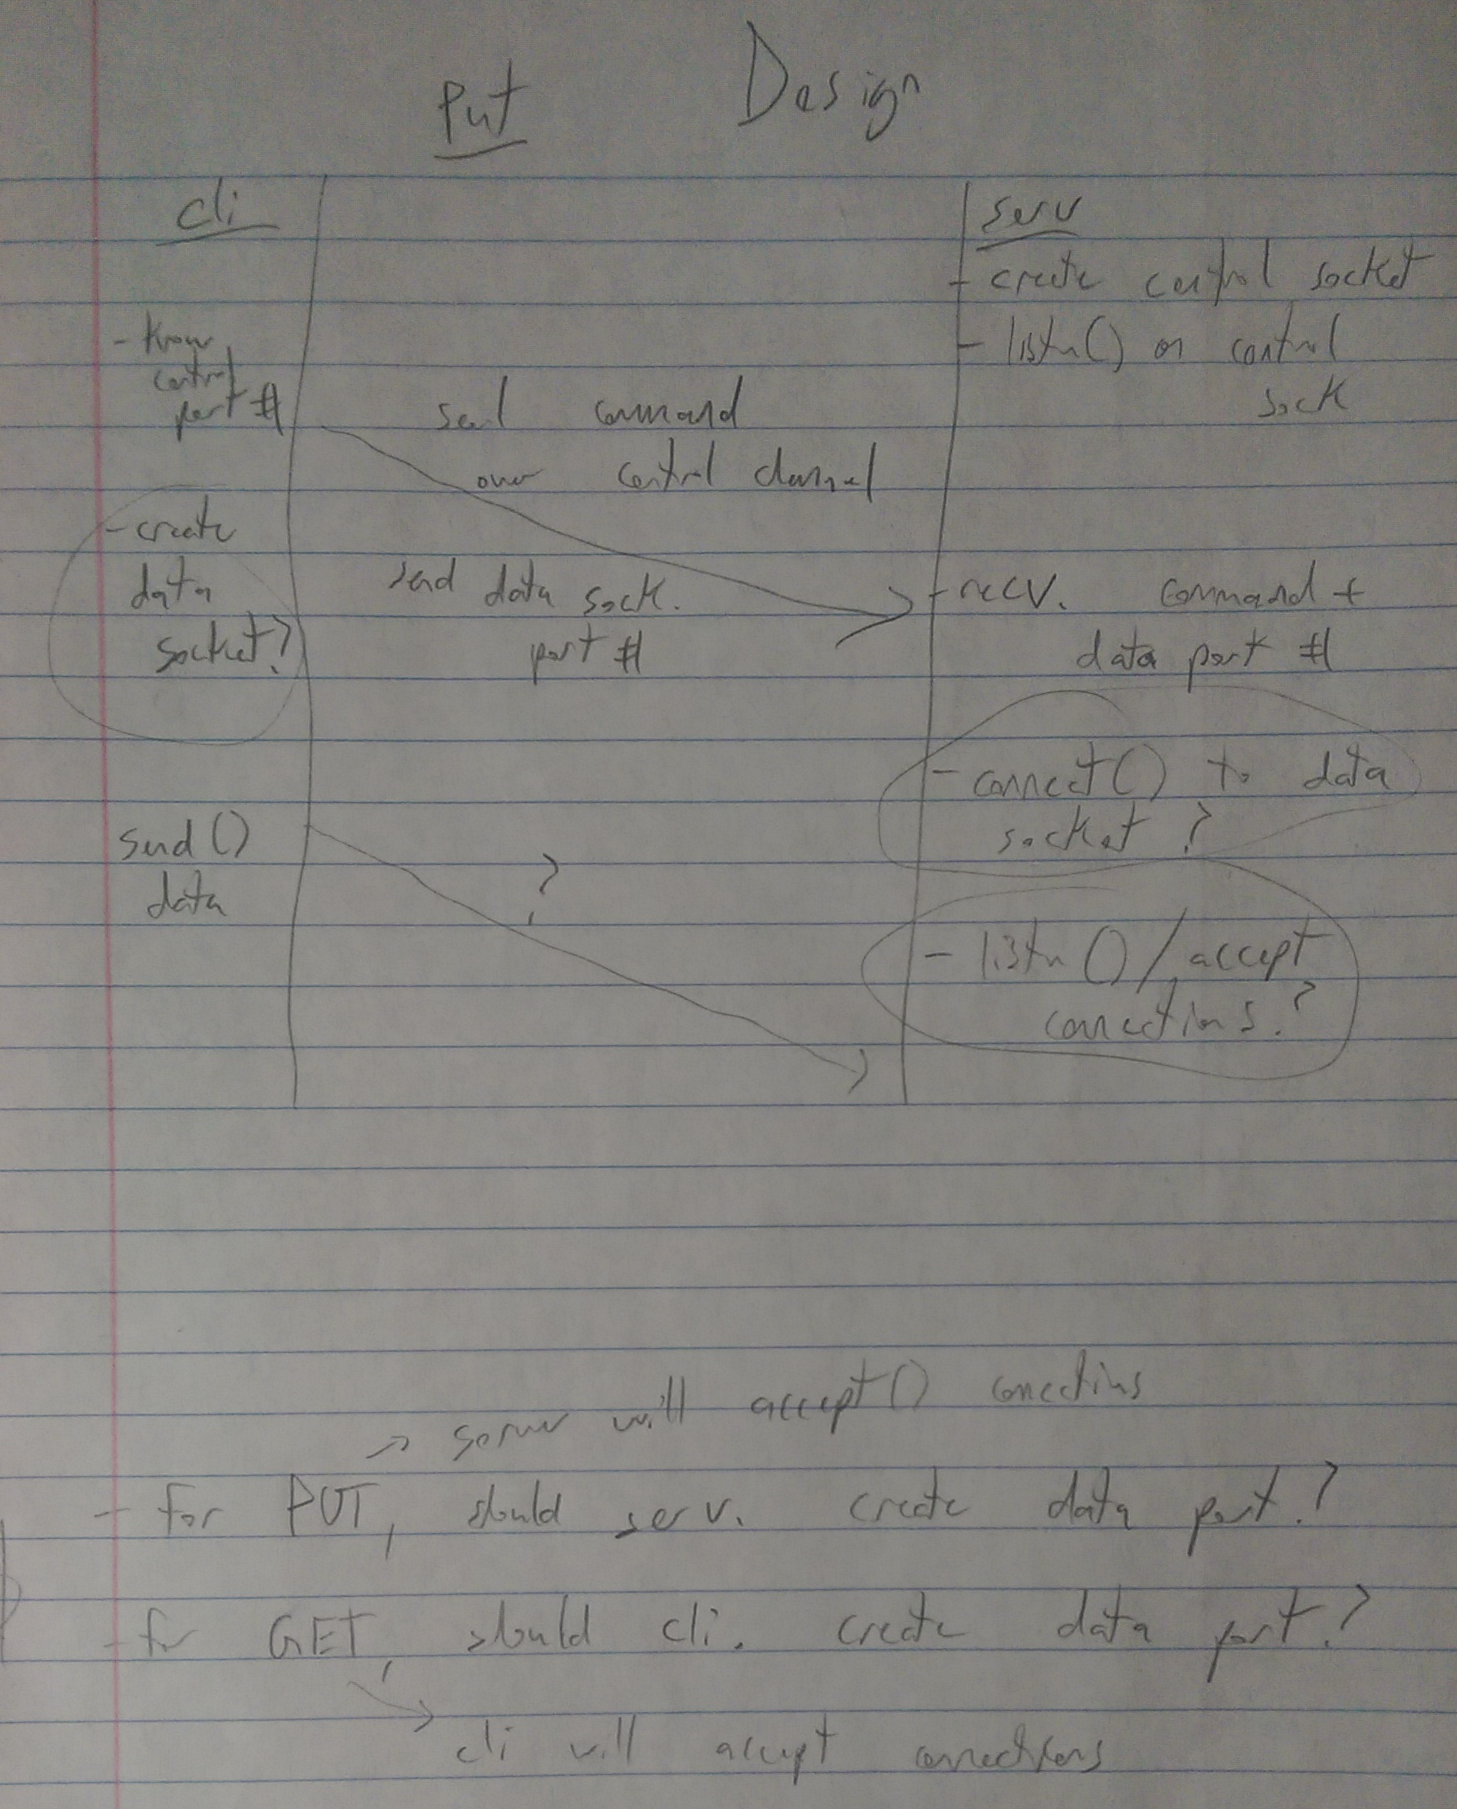 Put Design
cli
- know
control
port #
send command
over control channel
- create
data
socket?
send data sock.
port #
send()
data
?
serv
- create control socket
- listen() on control
sock
- recv. command +
data port #
- connect() to data
socket ?
- listen() / accept
connections?
→ server will accept() connections
- for PUT, should serv. create data port?
- for GET, should cli. create data port?
→ cli will accept connections